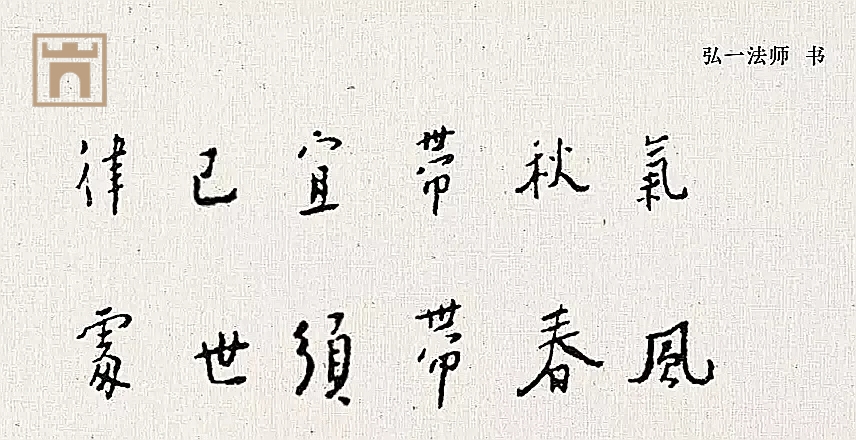 弘一法师 书
律己宜带秋氣
處世須帶春風